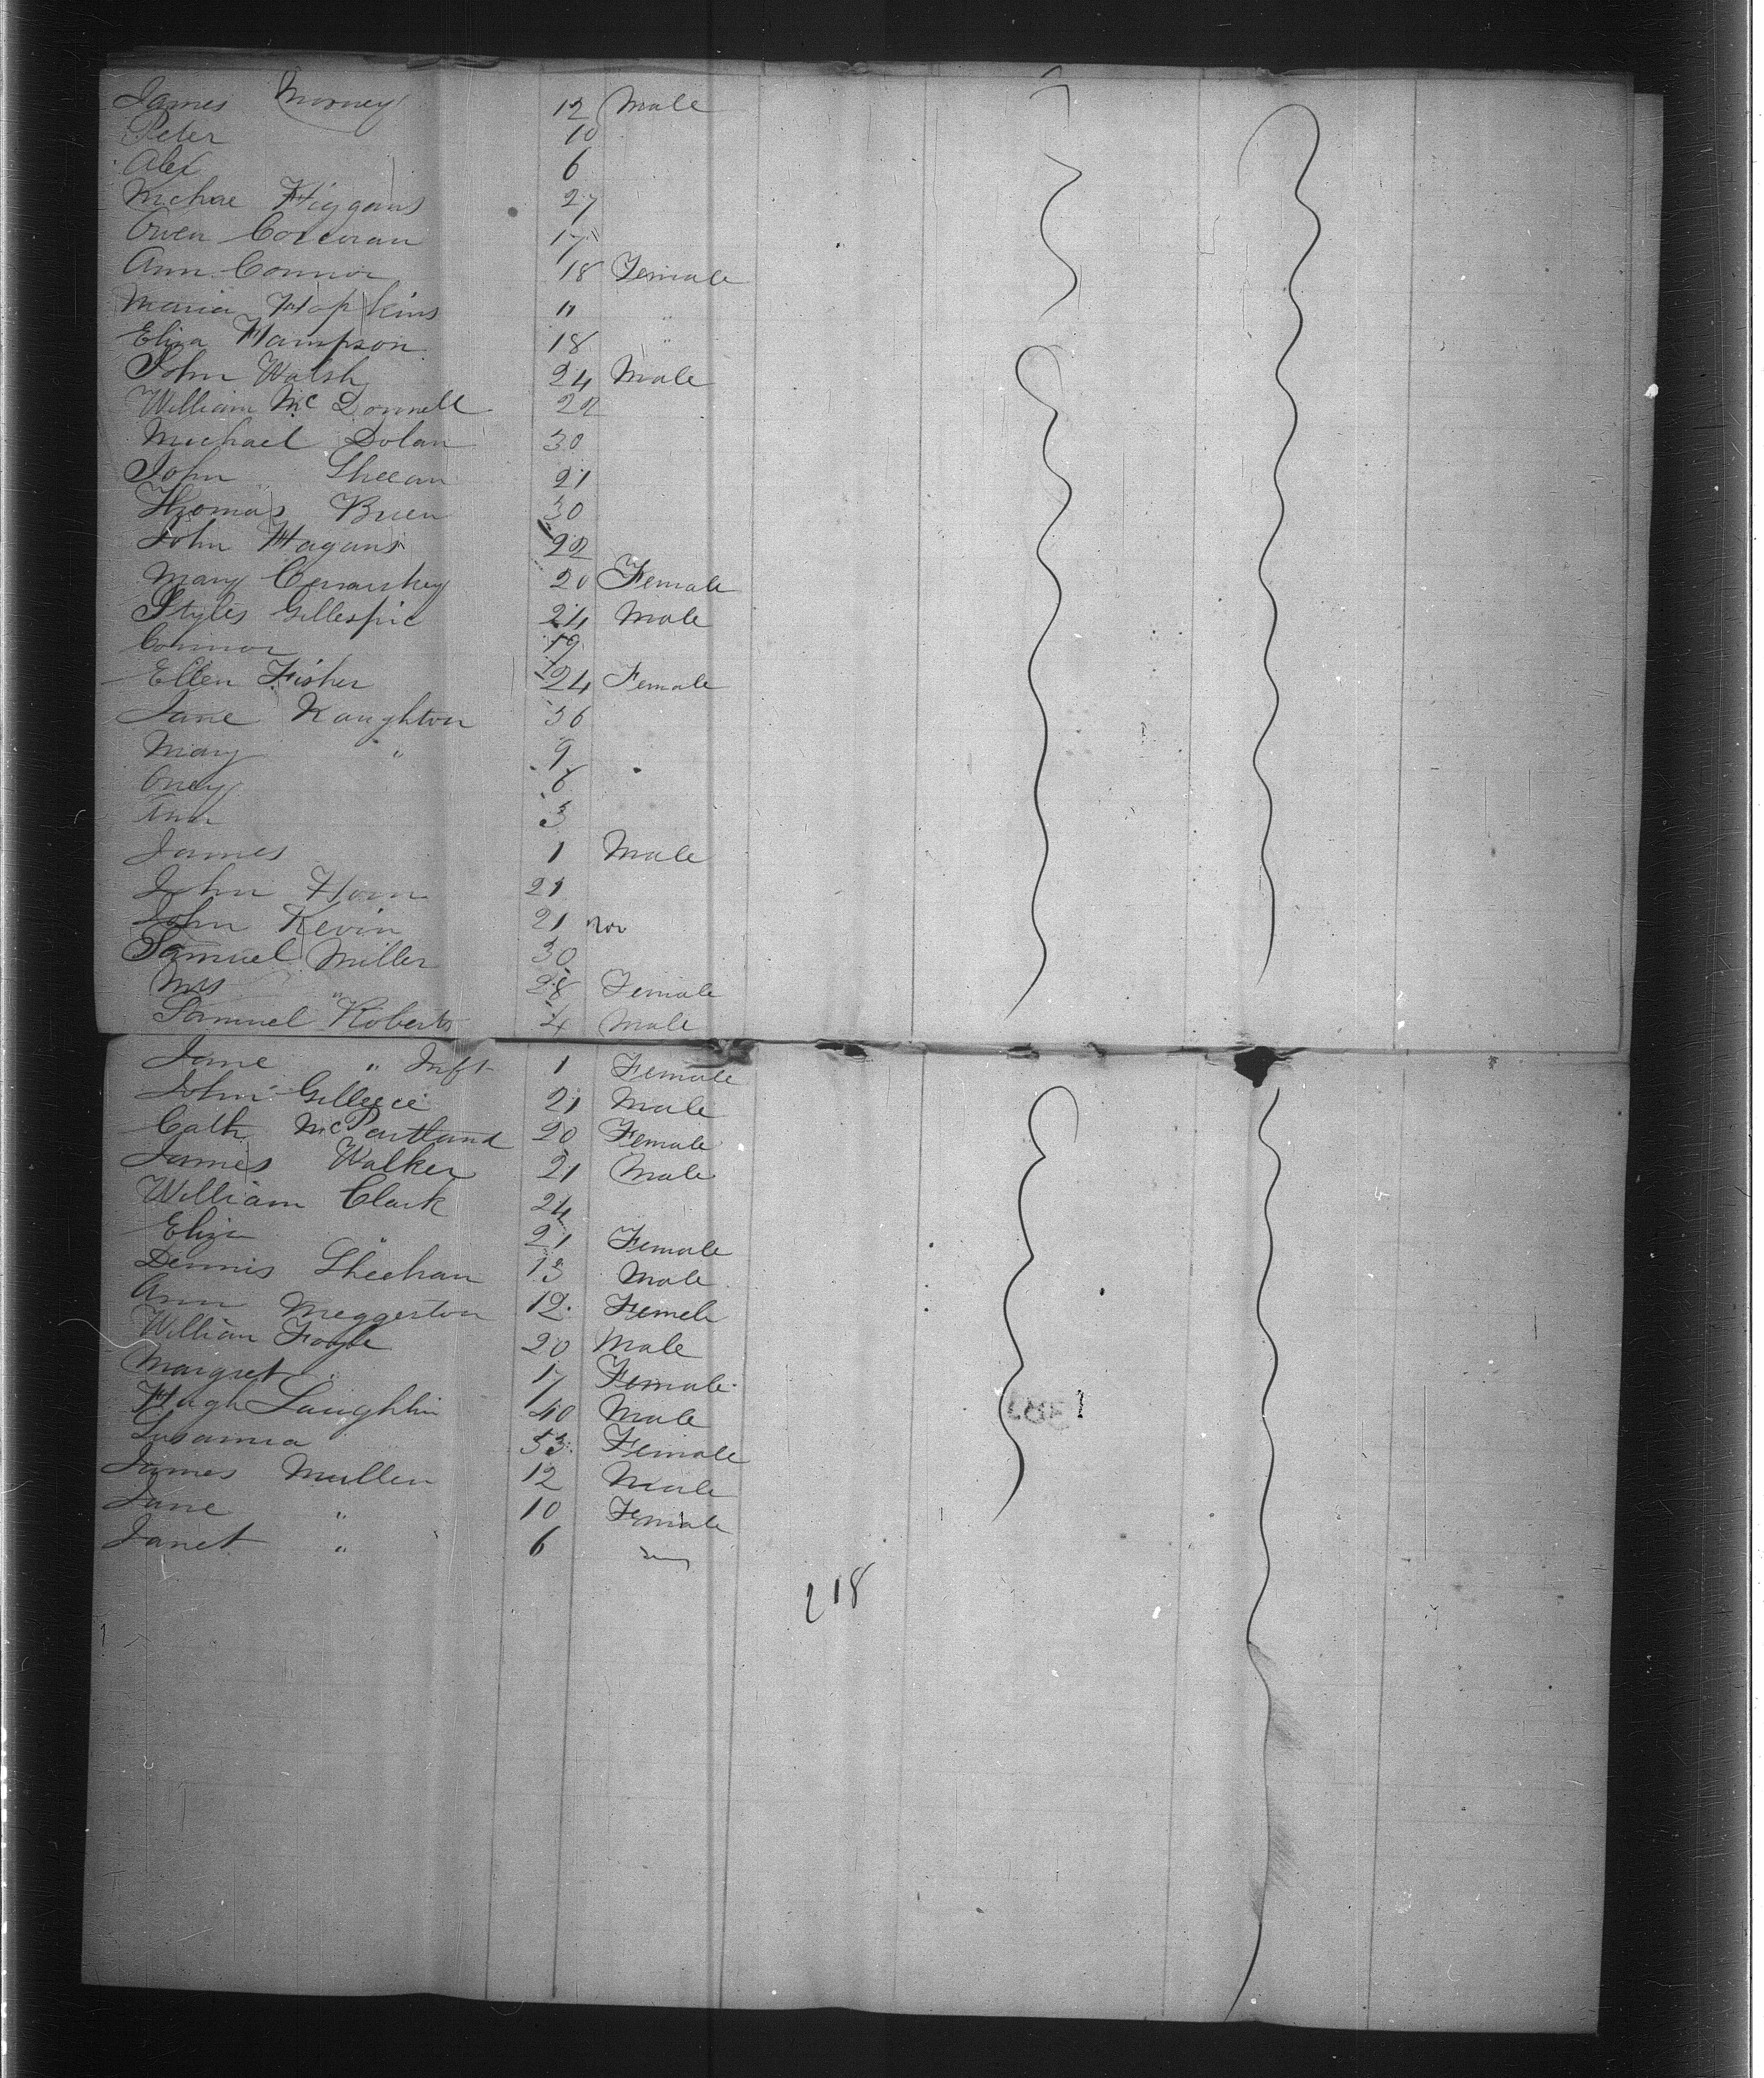 James Morney 12 Male
Peter 10
Alex 6
Michae Higgans 27
Owen Corcoran 17 "
Ann Connor 18 Female
Maria Hopkins " "
Eliza Hampson 18 "
John Walsh 24 Male
William McDonnell 22
Michael Dolan 30
John Sheean 21
Thomas Bruen 30
John Hagans 22
Mary 20 Female
Styles Gillespie 24 Male
Connor 19
Ellen Fisher 24 Female
Jane Naughton 36
Mary " 9
Oney 6
Ann 3
James 1 Male
John Horn 21
John Kevin 21
Samuel Miller 30
Mrs " 28 Female
Samuel Roberts 4 Male
Jane " Inft 1 Female
John Gilleece 21 Male
Cath McPartland 20 Female
James Walker 21 Male
William Clark 24
Eliza " 21 Female
Dennis Sheehan 13 Male
Ann Meggerton 12 Femele
William Foyle 20 Male
Margret " 17 Female
Hugh Laughlin 40 Male
Susanna 33 Female
James Mullen 12 Male
Jane " 10 Female
Janet " 6
218